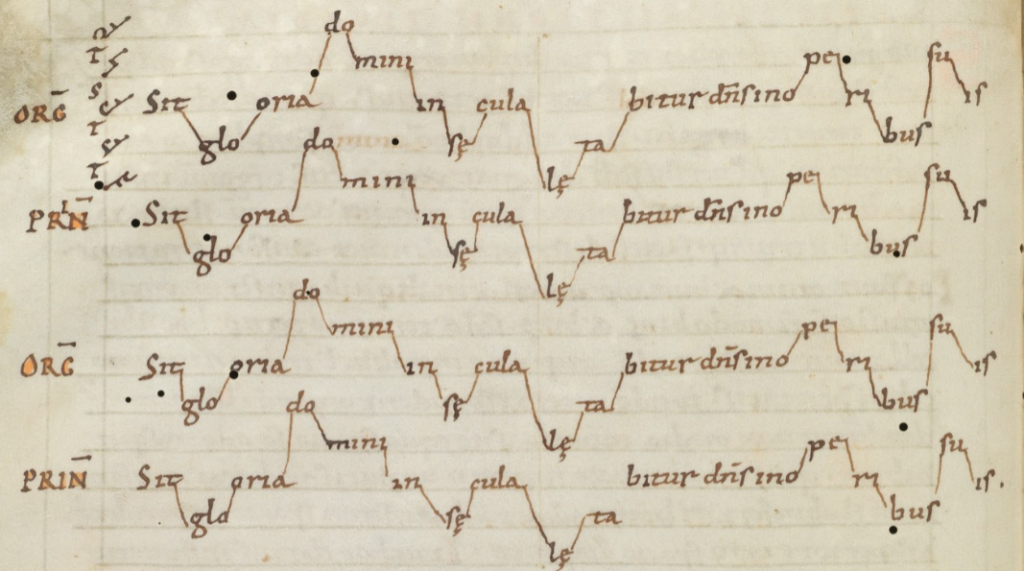 ORḠ Sit glo oria do mini in sę cula lę ta bitur dn̄s ino pe ri bus su is
PRL̄N̄ Sit glo oria do mini in sę cula lę ta bitur dn̄s ino pe ri bus su is
ORḠ Sit glo oria do mini in sę cula lę ta bitur dn̄s ino pe ri bus su is
PRIN̄ Sit glo oria do mini in sę cula lę ta bitur dn̄s ino pe ri bus su is.